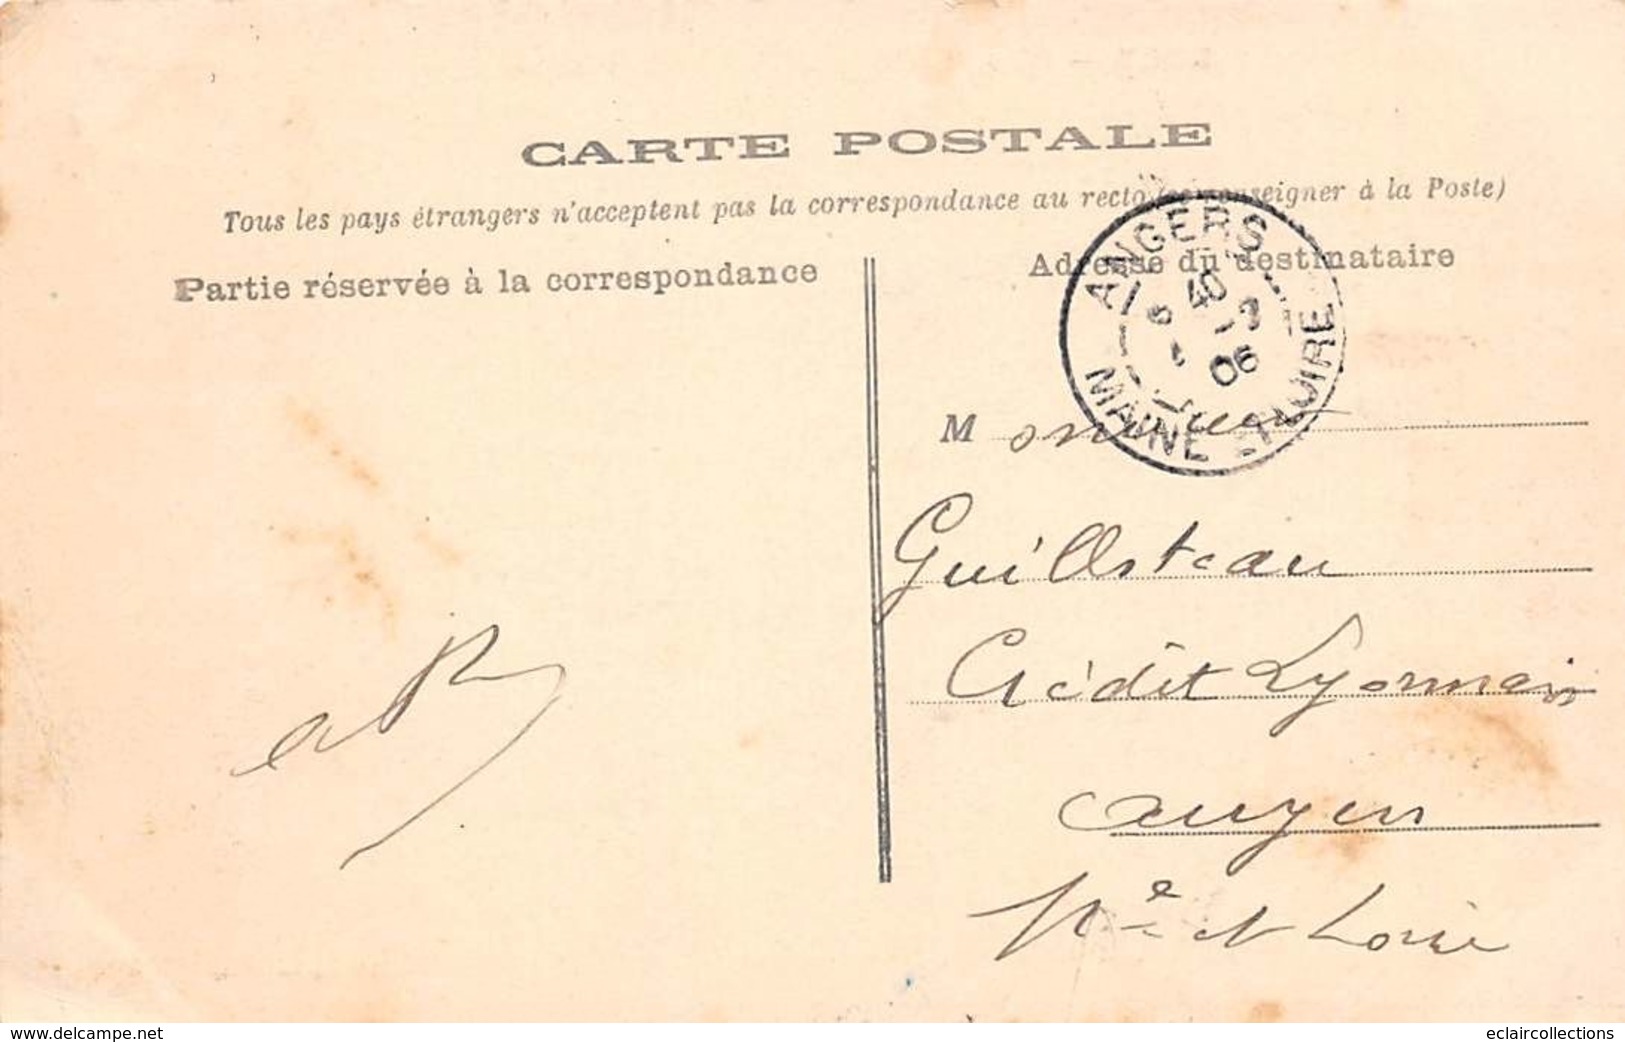 CARTE POSTALE
Tous les pays étrangers n'acceptent pas la correspondance au recto (se renseigner à la Poste)
Partie réservée à la correspondance
Adresse du destinataire
ANGERS
40
06
MAINE ET LOIRE
Monsieur
Guilloteau
Crédit Lyonnais
Angers
Mne et Loire
www.delcampe.net
eclaircollections